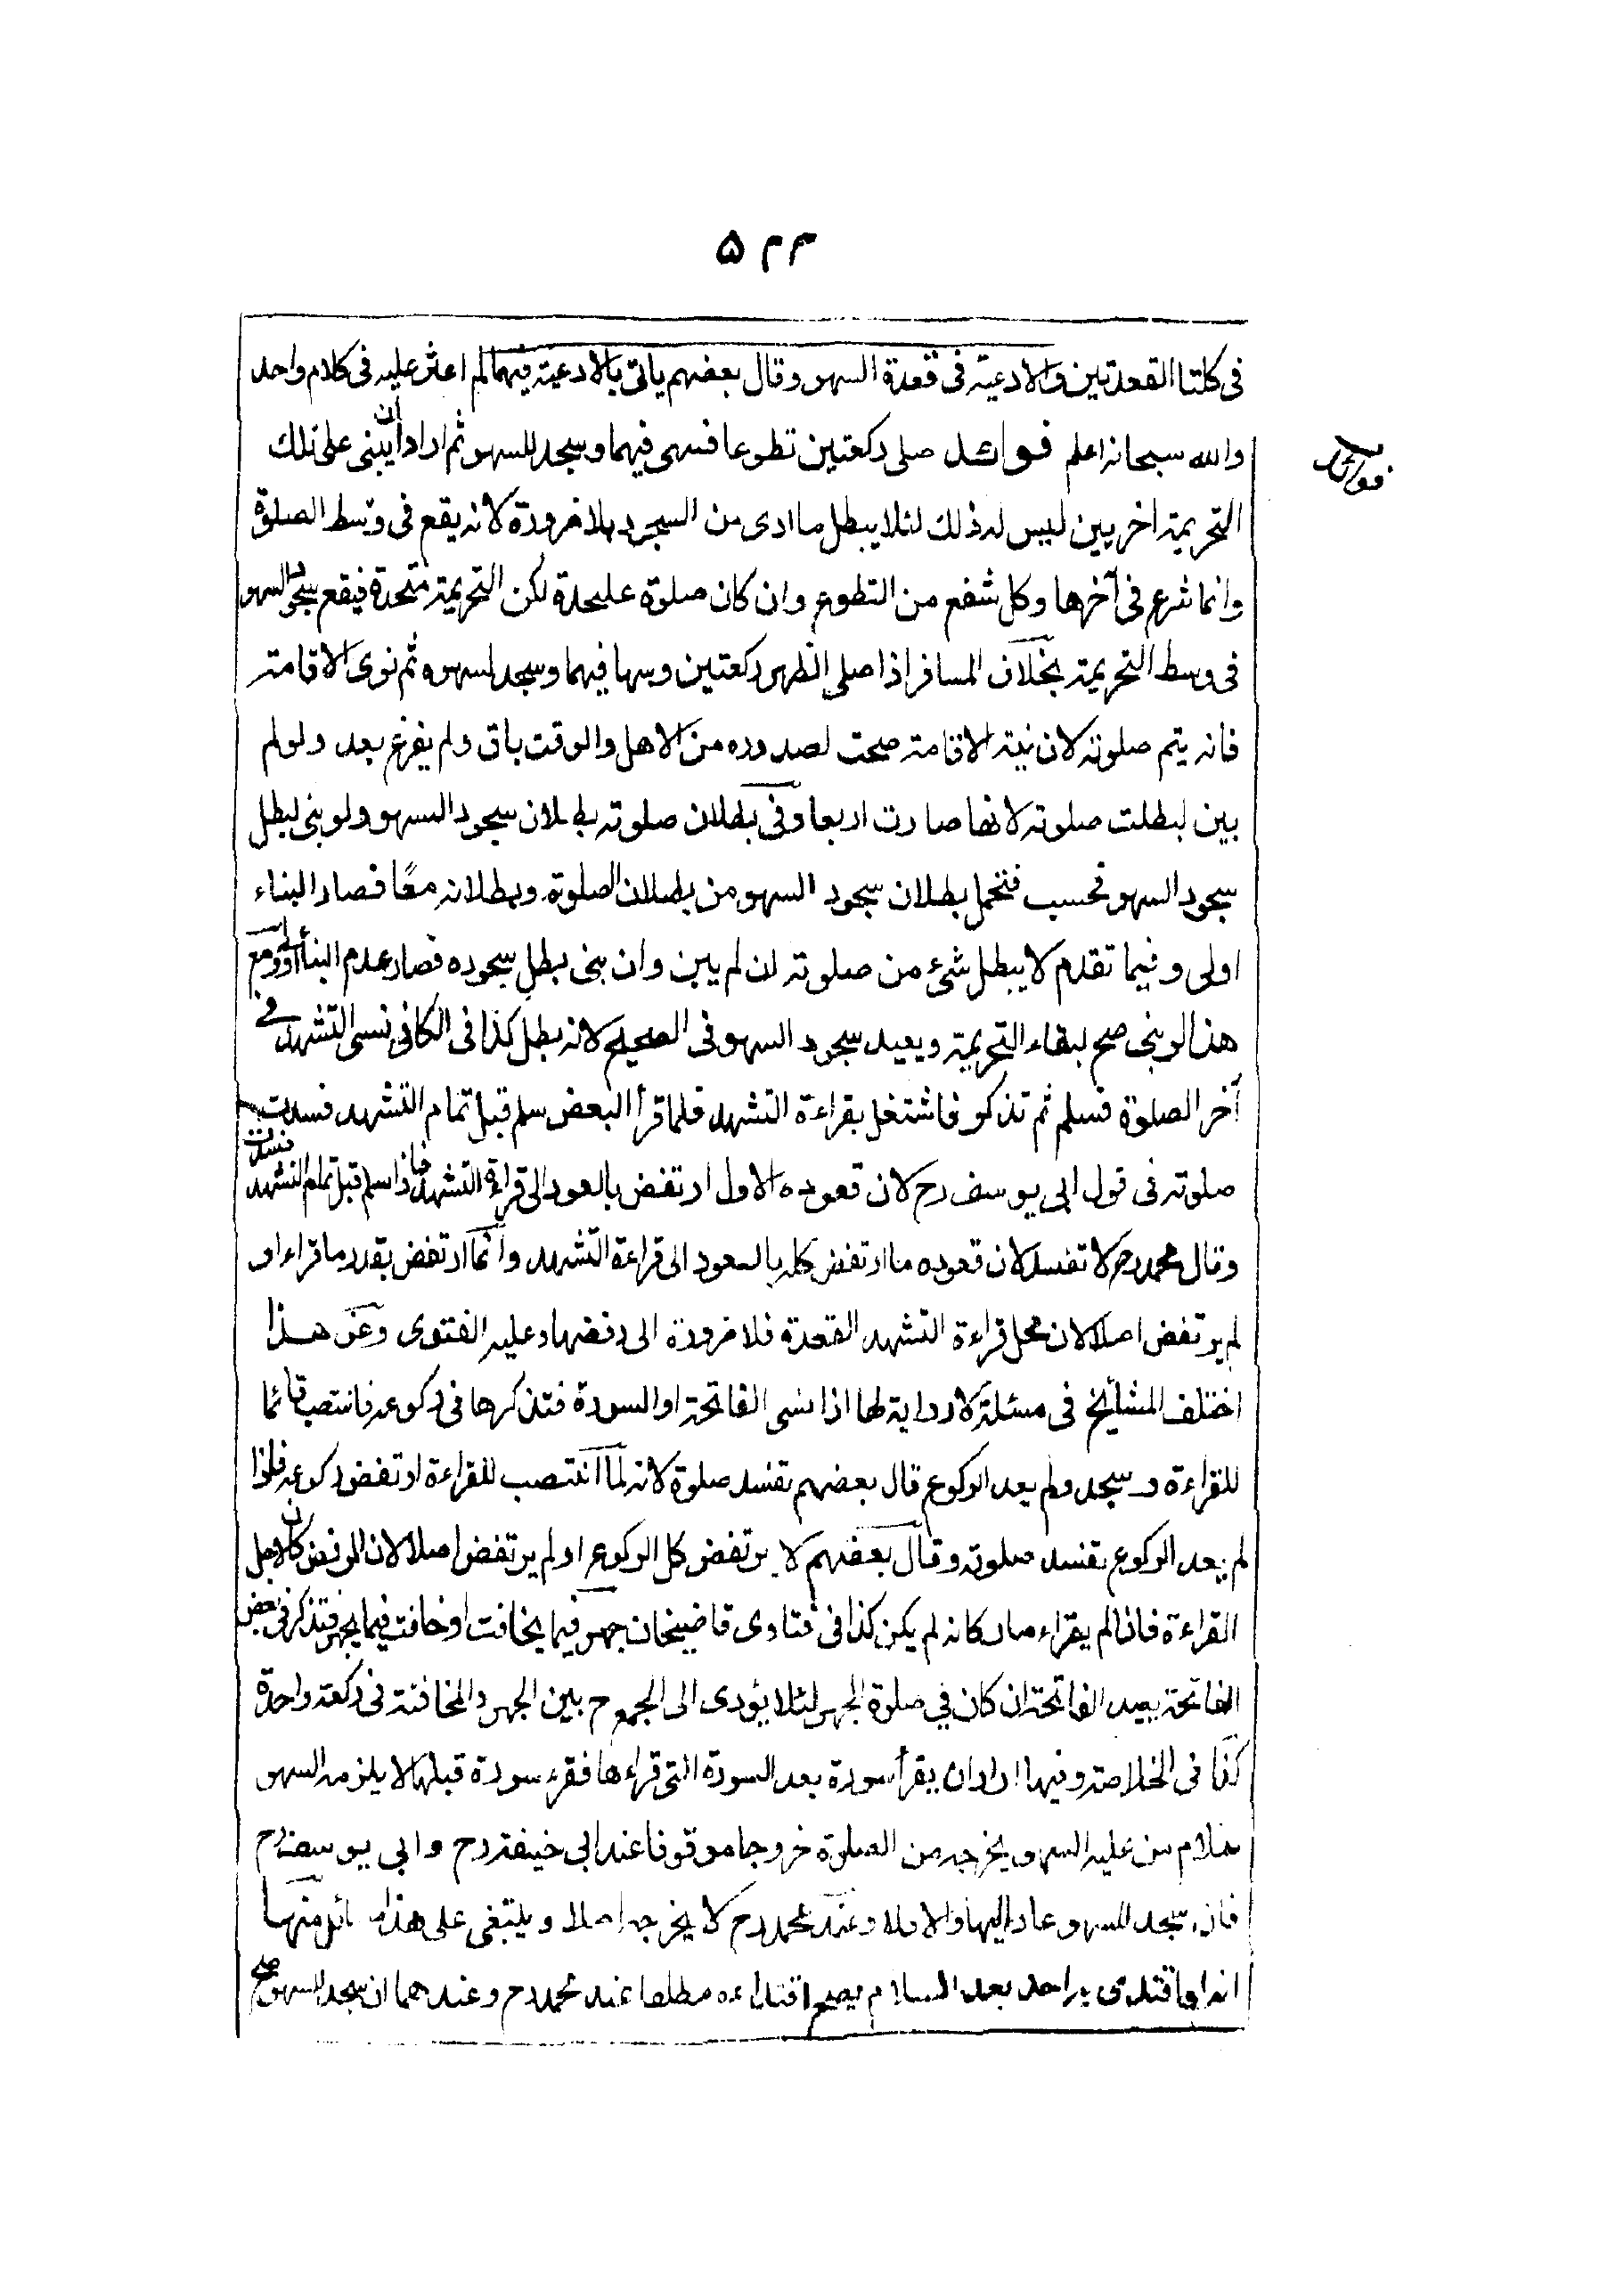 ۵۳۳
فی كلتا القعدتین والادعیة فی قعدة السهو وقال بعضهم یاتی بالادعیة فیهما لم اعثر علیه فی كلام واحد
والله سبحانه اعلم فوائد صلی ركعتین تطوعا فسهی فیهما وسجد للسهو ثم اراد ان یبنی علی تلك
فوائد
التحریمة اخریین لیس له ذلك لئلا یبطل ما ادی من السجود بلا ضرورة لانه یقع فی وسط الصلوة
وانما شرع فی آخرها وكل شفع من التطوع وان كان صلوة علیحدة لكن التحریمة متحدة فیقع سجود السهو
فی وسط التحریمة بخلاف المسافر اذا صلی الظهر ركعتین وسها فیهما وسجد لسهوه ثم نوی الاقامة
فانه یتم صلوته لان نیة الاقامة صحت لصدوره من الاهل والوقت باق ولم یفرغ بعد ولو لم
یبن لبطلت صلوته لانها صارت اربعا وفی بطلان صلوته بطلان سجود السهو ولو بنی لبطل
سجود السهو فحسب فتحمل بطلان سجود السهو من بطلان الصلوة وبطلانه معًا فصار البناء
اولی وفیما تقدم لا یبطل شیء من صلوته لن لم یبن وان بنی بطل سجوده فصار عدم البنأ اولی ومع
هذا لو بنی صح لبقاء التحریمة ویعید سجود السهو فی الصحیح لانه بطل كذا فی الكافی نسی التشهد فی
آخر الصلوة فسلم ثم تذكر فاشتغل بقراءة التشهد فلما قرأ البعض سلم قبل تمام التشهد فسدت
صلوته فی قول ابی یوسف رح لان قعوده الاول ارتفض بالعود الی قراءة التشهد فاذا سلم قبل تمام التشهد فسدت
وقال محمد رح لا تفسد لان قعوده ما ارتفض كله بالعود الی قراءة التشهد وانما ارتفض بقدر ما قراء او
لم یرتفض اصلا لان محل قراءة التشهد القعدة فلا ضرورة الی رفضها وعلیه الفتوی وعن هذا
اختلف المشایخ فی مسئلة لا روایة لها اذا نسی الفاتحة او السورة فتذكرها فی ركوعه فانتصب قائما
للقراءة وسجد ولم یعد الركوع قال بعضهم تفسد صلوة لانه لما انتصب للقراءة ارتفض ركوعه فاذا
لم یعد الركوع تفسد صلوته وقال بعضهم لا یرتفض كل الركوع او لم یرتفض اصلا لان الرفض كان لاجل
القراءة فاذا لم یقراء صار كانه لم یكن كذا فی فتاوی قاضیخان جهر فیما یخافت او خافت فیما یجهر فتذكر فی بعض
الفاتحة یعید الفاتحة ان كان فی صلوة الجهر لئلا یؤدی الی الجمع ح بین الجهر والمخافتة فی ركعة واحدة
كذا فی الخلاصة وفیها اراد ان یقرأ سورة بعد السورة التی قراءها فقرء سورة قبلها لا یلزمه السهو
سلام من علیه السهو یخرجه من الصلوة خروجا موقوفا عند ابی حنیفة رح وابی یوسف رح
فان سجد للسهو عاد الیها والا فلا وعند محمد رح لا یخرجه اصلا ویبتغی علی هذا مسائل منها
انه لو اقتدی به احد بعد السلام یصح اقتداءه مطلقا عند محمد رح وعندهما ان سجد للسهو صح